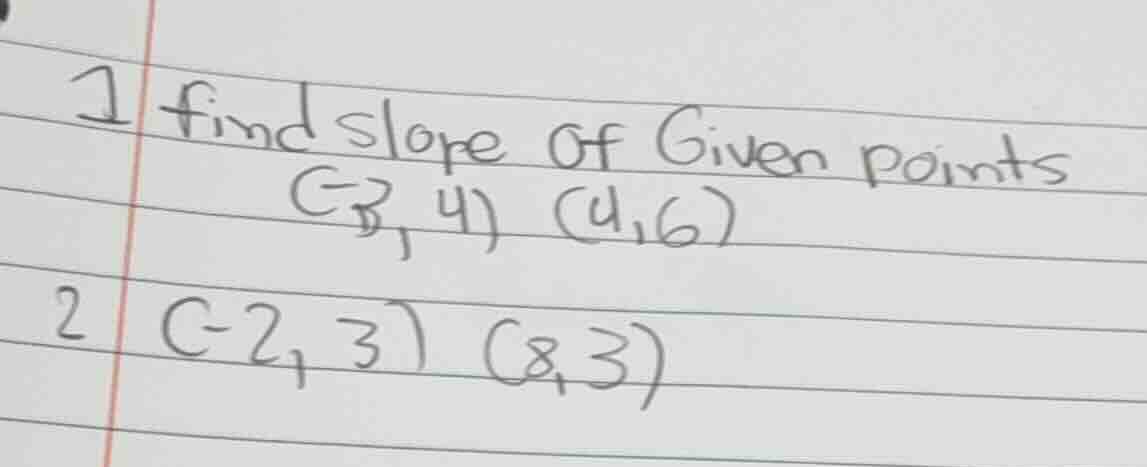 1 find slope of Given points
(-3, 4) (4,6)
2 (-2, 3) (8,3)